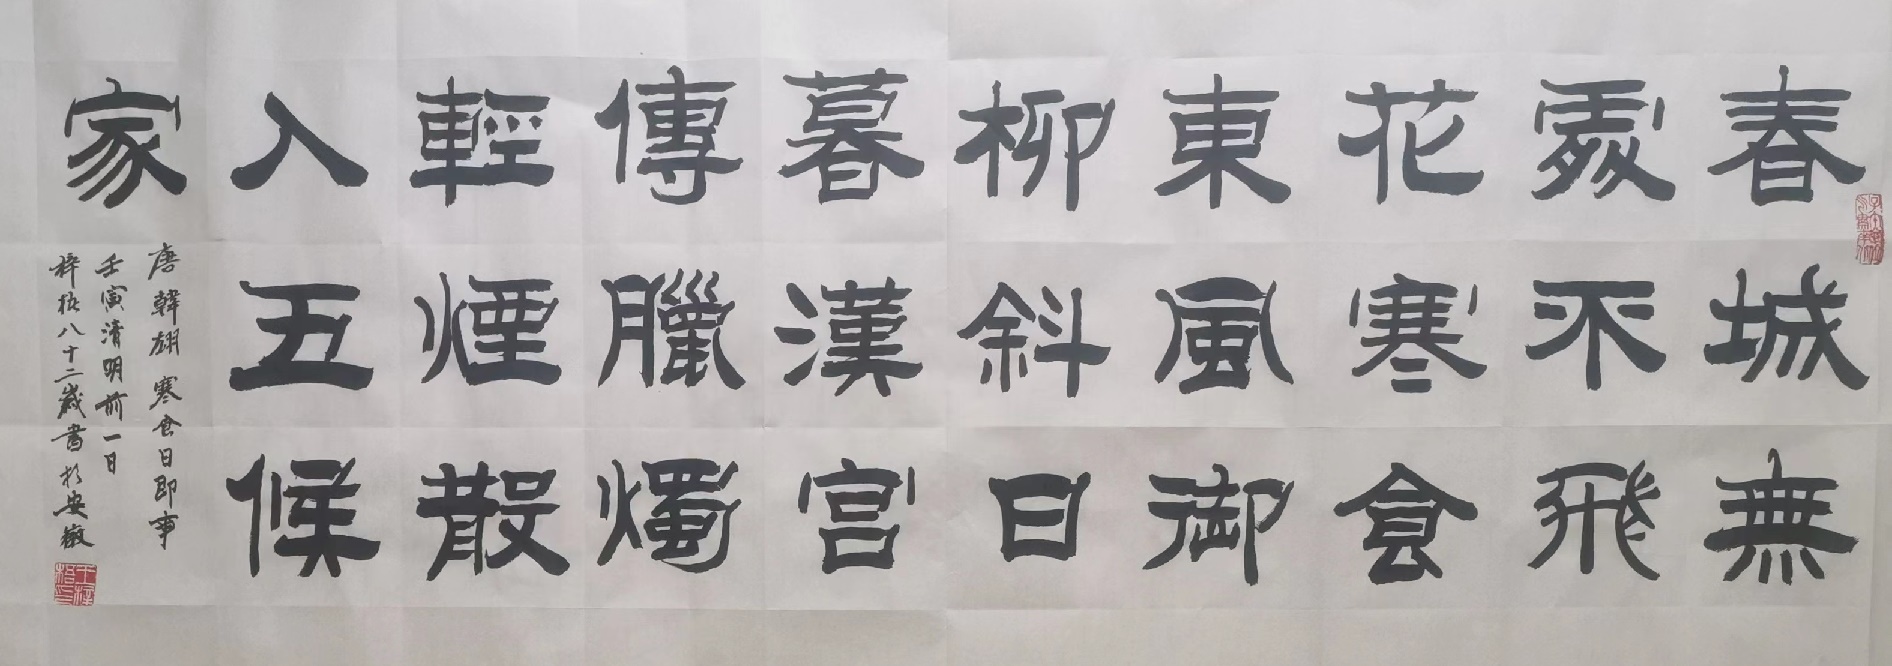 春城無
處不飛
花寒食
東風御
柳斜日
暮漢宮
傳臘燭
輕煙散
入五候
家
唐韓翃寒食日即事
壬寅清明前一日
梓八十二歲書於安徽